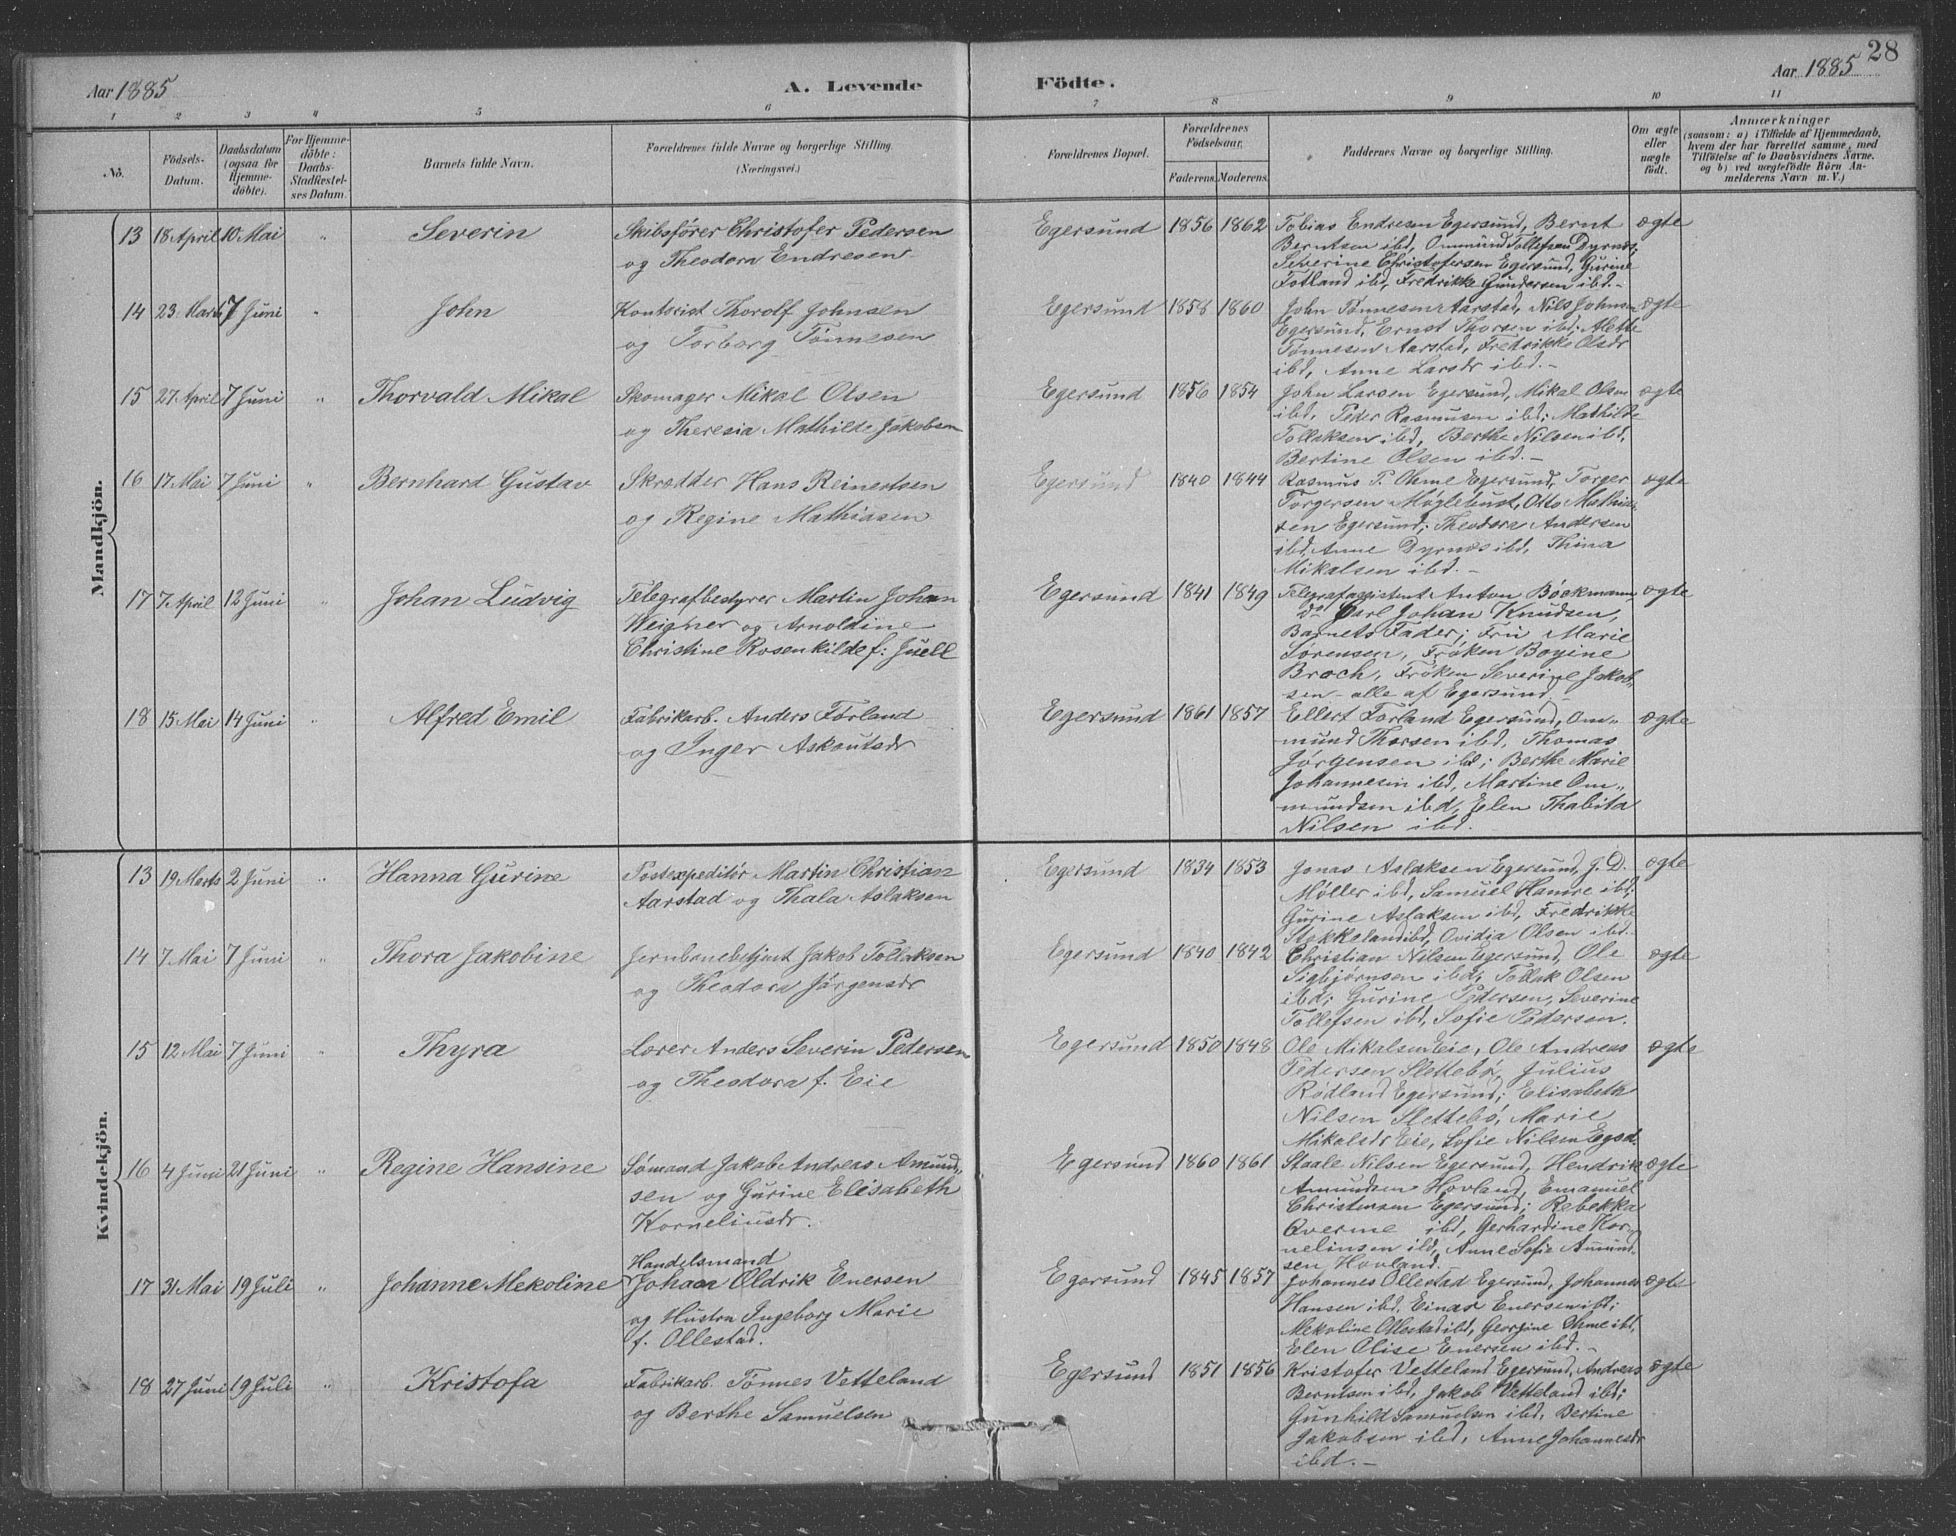 28
Aar 1885
A. Levende
Födte.
Aar 1885
1 2 3 4 5 6 7 8 9 10 11
No.
Födsels-Datum.
Daabsdatum (ogsaa for Hjemmedöbte).
For Hjemmedöbte: Daabs-Stadfæstelses Datum.
Barnets fulde Navn.
Forældrenes fulde Navne og borgerlige Stilling.
(Næringsvei.)
Forældrenes Bopæl.
Forældrenes Födselsaar.
Faderens. Moderens.
Faddernes Navne og borgerlige Stilling.
Om ægte eller uægte födt.
Anmærkninger
(saasom: a) i Tilfælde af Hjemmedaab,
hvem der har forrettet samme, med
Tilföielse af to Daabsvidners Navne,
og b) ved uægtefödte Börn Anmelderens Navn m. V.)
Mandkjön.
13 18 April 10 Mai " Severin
Skibsfører Christofer Pedersen
og Theodora Endresen
Egersund 1856 1862
Tobias Endresen Egersund, Bernt
Berntsen ibd, Ommund Tollefsen Dyrnes;
Severine Christofersen Egersund, Gurine
Fotland ibd, Fredrikke Gundersen ibd.-
ægte
14 23 Marts 7 Juni " John
Kontorist Thorolf Johnsen
og Torborg Tønnesen
Egersund 1858 1860
John Tønnesen Aarstad, Nils Johnsen
Egersund, Ernst Thorsen ibd; Alette
Tønnesen Aarstad, Fredrikke Olsdr
ibd, Anne Larsdr ibd.-
ægte
15 27 April 7 Juni " Thorvald Mikal
Skomager Mikal Olsen
og Theresia Mathilde Jakobsen
Egersund 1856 1854
John Larsen Egersund, Mikal Olsen
ibd, Peder Rasmusen ibd; Mathilde
Tollaksen ibd, Berthe Nilsen ibd,
Bertine Olsen ibd.-
ægte
16 17 Mai 7 Juni " Bernhard Gustav
Skrædder Hans Reinertsen
og Regine Mathiasen
Egersund 1840 1844
Rasmus P. Ohme Egersund, Torger
Torgersen Møgletust, Otto Mathia-
sen Egersund; Theodora Andersen
ibd, Anne Dyrnes ibd, Thina
Mikalsen ibd.-
ægte
17 7 April 12 Juni " Johan Ludvig
Telegrafbestyrer Martin Johan
Weigner og Arnoldine
Christine Rosenkilde f: Juell
Egersund 1841 1849
Telegrafassistent Anton Bøckmann,
Do Carl Johan Knudsen,
Barnets Fader; Fru Marie
Sørensen, Frøken Boyine
Broch, Frøken Severine Jakob-
sen - alle af Egersund.
ægte
18 15 Mai 14 Juni " Alfred Emil
Fabrikarb. Anders Førland
og Inger Askoutsdr
Egersund 1861 1857
Ellert Forland Egersund, Om-
mund Thorsen ibd, Thomas
Jørgensen ibd; Berthe Marie
Johannesen ibd, Martine Om-
mundsen ibd, Elen Thabita
Nilsen ibd.
ægte
Kvindekjön.
13 19 Marts 2 Juni " Hanna Gurine
Postexpeditør Martin Christian
Aarstad og Thala Aslaksen
Egersund 1834 1853
Jonas Aslaksen Egersund, J. D.
Møller ibd, Samuel Hamre ibd;
Gurine Aslaksen ibd, Fredrikke
Stokkeland ibd, Ovidia Olsen ibd.
ægte
14 7 Mai 7 Juni " Thora Jakobine
Jernbanebetjent Jakob Tollaksen
og Theodora Jörgensdr
Egersund 1840 1842
Christian Nilsen Egersund, Ole
Sigbjørnsen ibd, Tollak Olsen
ibd; Gurine Pedersen, Severine
Tollefsen ibd, Sofie Pedersen.
ægte
15 12 Mai 7 Juni " Thyra
Anders Severin Pedersen
og Theodora f. Eie
Egersund 1850 1848
Ole Mikalsen Eie, Ole Andreas
Pedersen Slettebø, Julius
Rødland Egersund; Elisabeth
Nilsen Slettebø, Marie
Mikalsdr Eie, Sofie Nilsen Egsd.
ægte
16 4 Juni 21 Juni " Regine Hansine
Sømand Jakob Andreas Amund-
sen og Gurine Elisabeth
Korneliusdr.
Egersund 1860 1861
Staale Nilsen Egersund, Hendrik
Amundsen Hovland, Emanuel
Christensen Egersund; Rebekka
Qverme ibd, Gerhardine Kor-
neliusen ibd, Anne Sofie Amund-
sen Hovland.
ægte
17 31 Mai 19 Juli " Johanne Mekoline
Handelsmand
Johan Oldrik Enersen
og Hustru Ingeborg Marie
f. Ollestad.
Egersund 1845 1857
Johannes Ollestad Egersund, Johannes
Hansen ibd, Einar Enersen ibd;
Mekoline Ollestad ibd, Georgine Ohme ibd,
Elen Olise Enersen ibd.-
ægte
18 27 Juni 19 Juli " Kristofa
Fabrikarb. Tønnes Vetteland
og Berthe Samuelsen
Egersund 1851 1856
Kristofer Vetteland Egersund, Andreas
Berntsen ibd, Jakob Vetteland ibd;
Gunhild Samuelsen ibd, Bertine
Jakobsen ibd, Anne Johannesdr
ibd.-
ægte